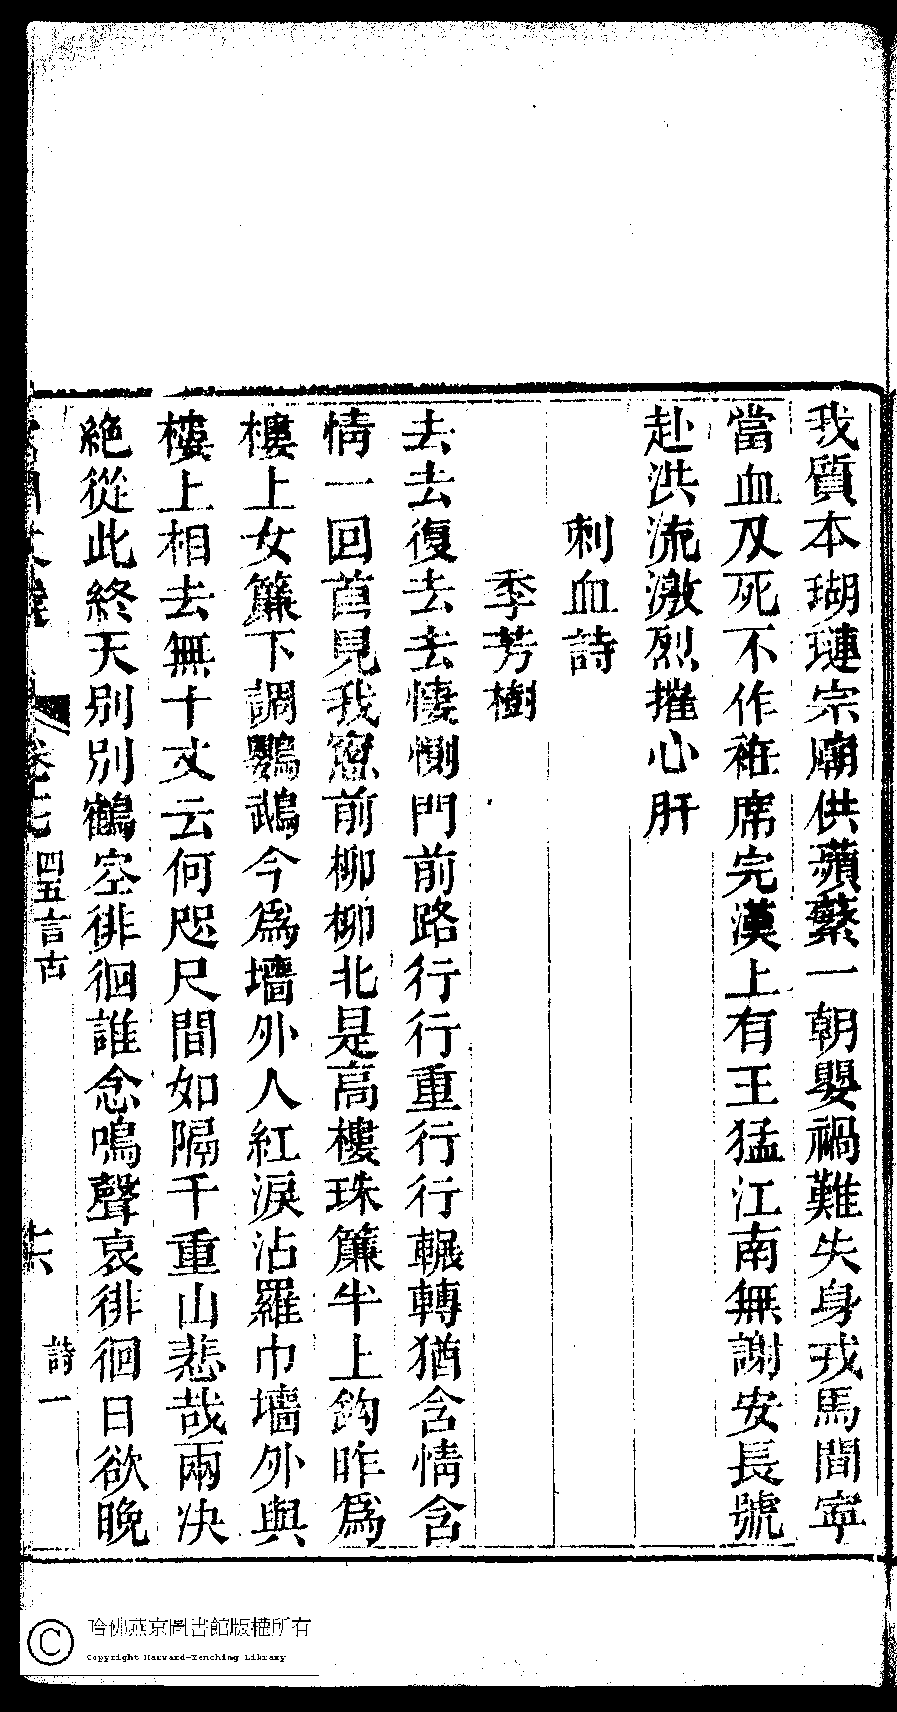 我質本瑚璉宗廟供蘋蘩一朝嬰禍難失身戎馬間寧
當血刃死不作袵席完漢上有王猛江南無謝安長號
赴洪流激烈摧心肝
刺血詩
季芳樹
去去復去去悽惻門前路行行重行行輾轉猶含情含
情一回首見我窻前柳柳北是高樓珠簾半上鈎昨爲
樓上女簾下調鸚鵡今爲墻外人紅淚沾羅巾墻外與
樓上相去無十丈云何咫尺間如隔千重山悲哉兩决
絶從此終天別別鶴空徘徊誰念鳴聲哀徘徊日欲晩
卷七
四五言古
十六
詩一
哈佛燕京圖書館版權所有
Copyright Harvard-Yenching Library